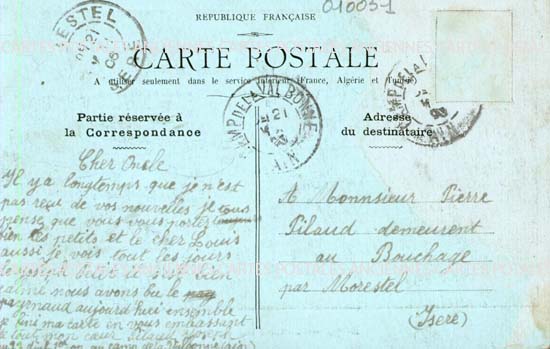 010051
REPUBLIQUE FRANÇAISE
CARTE POSTALE
A utiliser seulement dans le service intérieur (France, Algérie et Tunisie)
MORESTEL
21
ISERE
CAMP DE LA VALBONNE
21
AIN
Partie réservée à
la Correspondance
Adresse
du destinataire
Cher Oncle
Il y a longtemps que je n'est
pas reçu de vos nouvelles je
pense que vous vous portez
bien les petits et le cher Louis
aussi je vois tout les jours
le
nous avons bu le
aujourd'hui ensemble
je fini ma carte en vous embrassant
tout mon cœur Pilaud
au camp de la Valbonne (ain)
A Monnsieur Pierre
Pilaud demeurent
au Bouchage
par Morestel
(Isere)